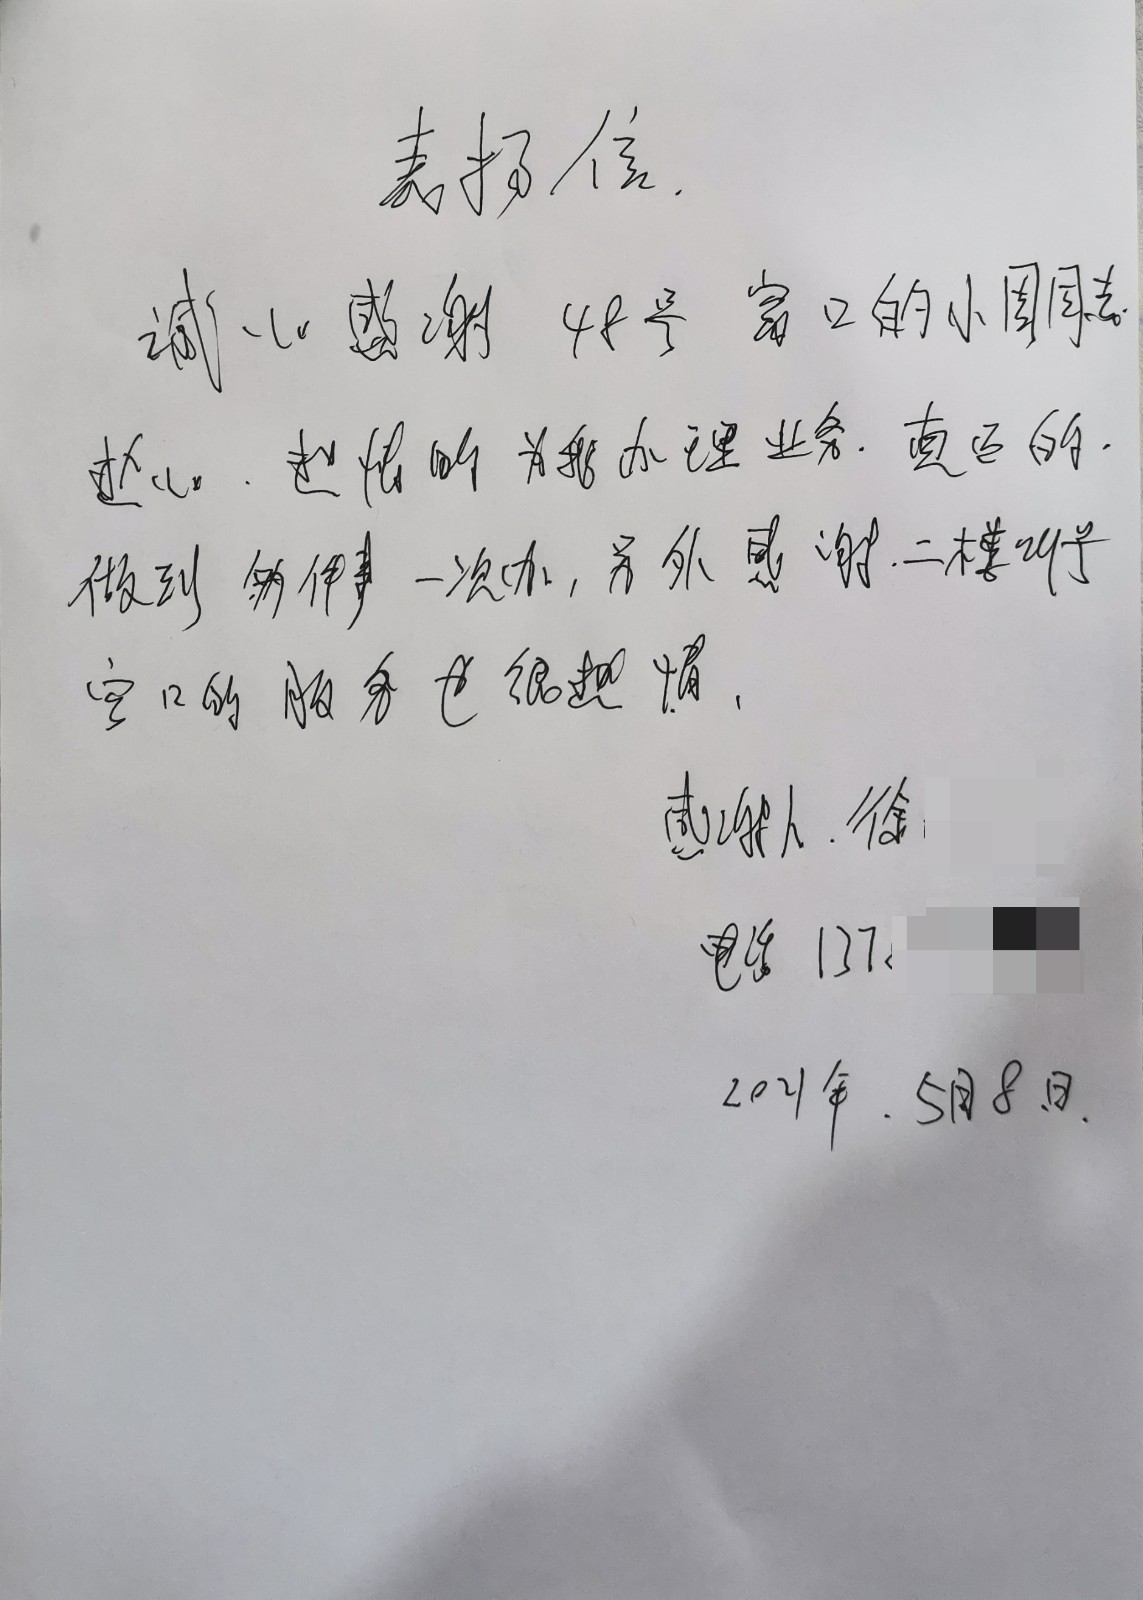 表扬信.
诚心感谢 48号 窗口的小周同志.
热心. 热情的为我办理业务. 真正的.
做到 一件事一次办, 另外感谢.二楼24号
窗口的服务也很热情.
感谢人.徐
电话 137
2021年.5月8日.